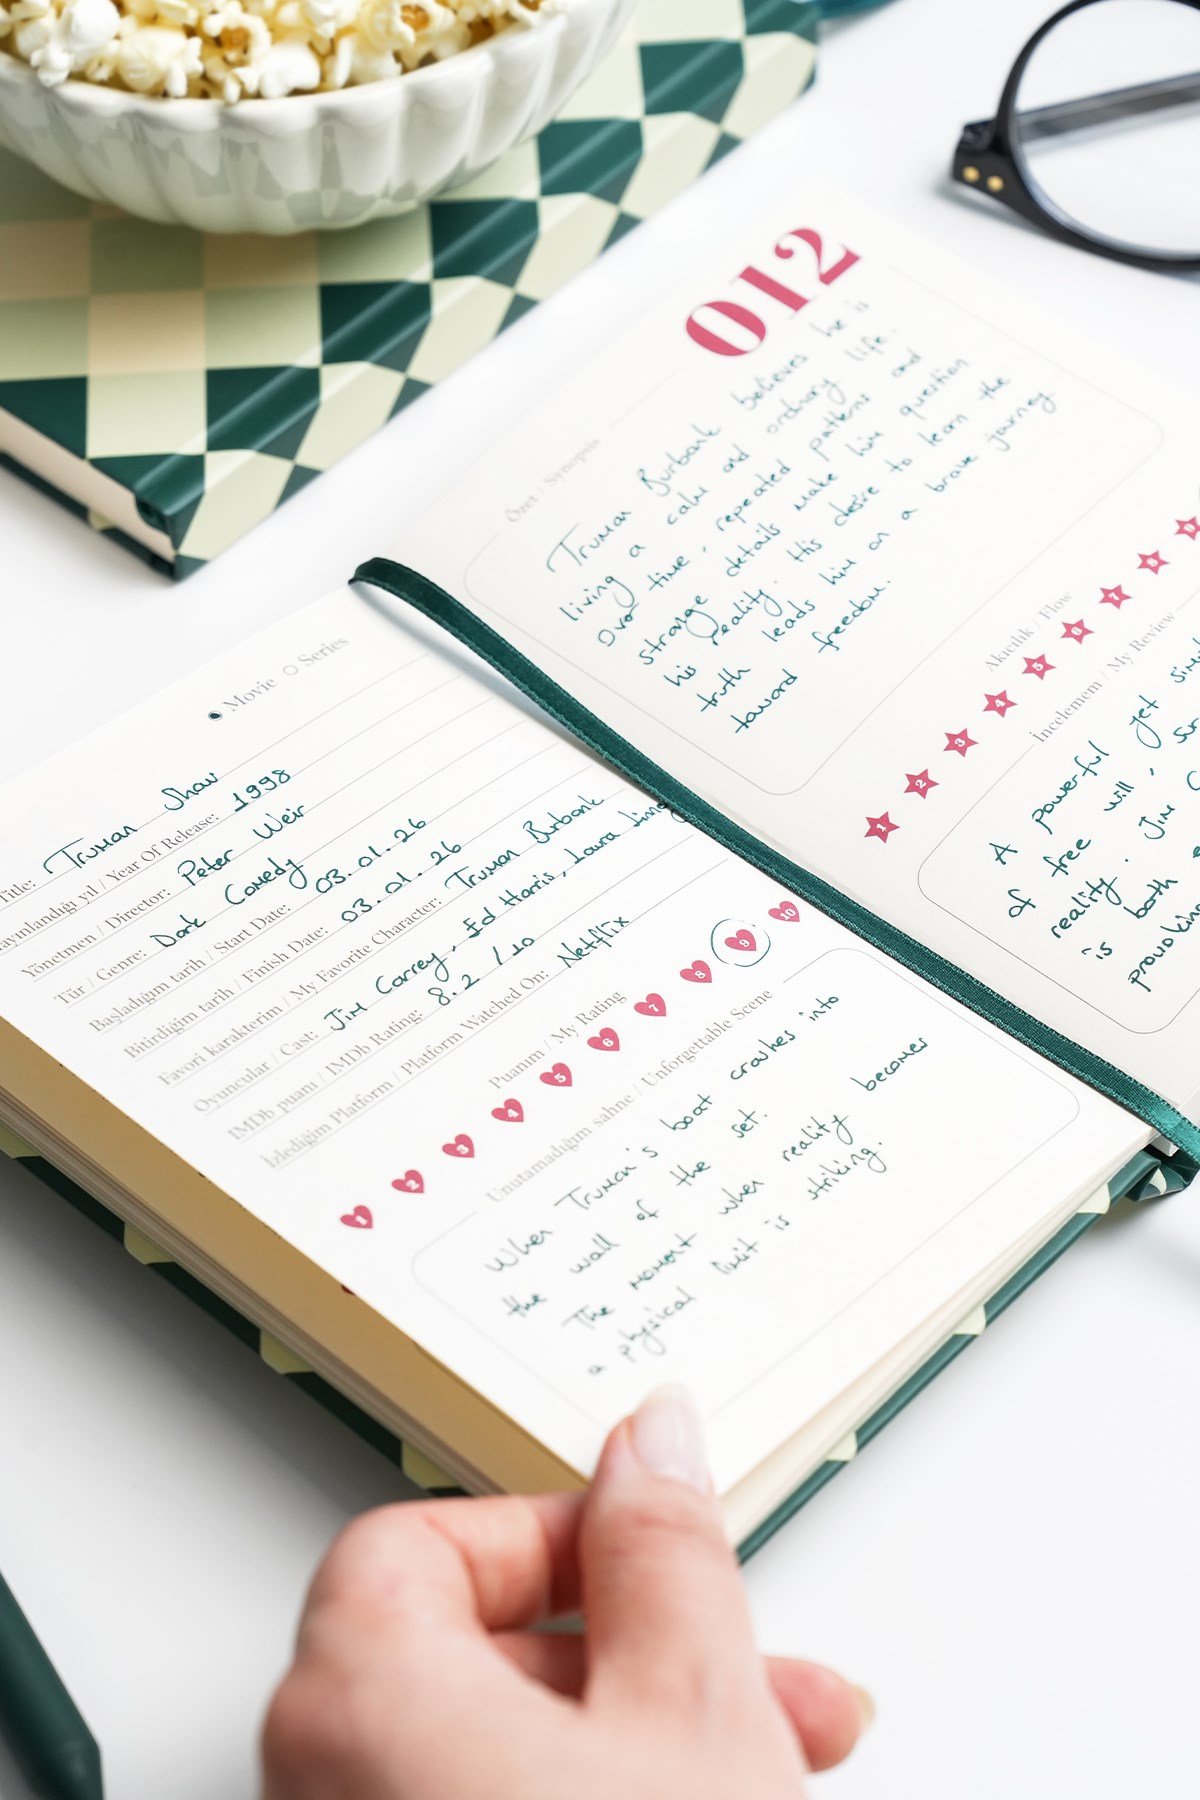 ● Movie ○ Series
Title: Truman Show
Yayınlandığı yıl / Year Of Release: 1998
Yönetmen / Director: Peter Weir
Tür / Genre: Dark Comedy
Başladığım tarih / Start Date: 03.01.26
Bitirdiğim tarih / Finish Date: 03.01.26
Favori karakterim / My Favorite Character: Truman Burbank
Oyuncular / Cast: Jim Carrey, Ed Harris, Laura
IMDb puanı / IMDB Rating: 8.2 /10
İzlediğim Platform / Platform Watched On: Netflix
Puanım / My Rating
1 2 3 4 5 6 7 8 9 10
Unutamadığım sahne / Unforgettable Scene
When Truman's boat crashes into
the wall of the set.
The moment when reality becomes
a physical limit is striking.
012
Özet / Synopsis
Truman Burbank believes he is
living a calm and ordinary life.
Over time, repeated patterns and
strange details make him question
his reality. His desire to learn the
truth leads him on a brave journey
toward freedom.
Akıcılık / Flow
1 2 3 4 5 6 7 8 9
İncelemem / My Review
A powerful yet
of free will,
reality. Jim
is both